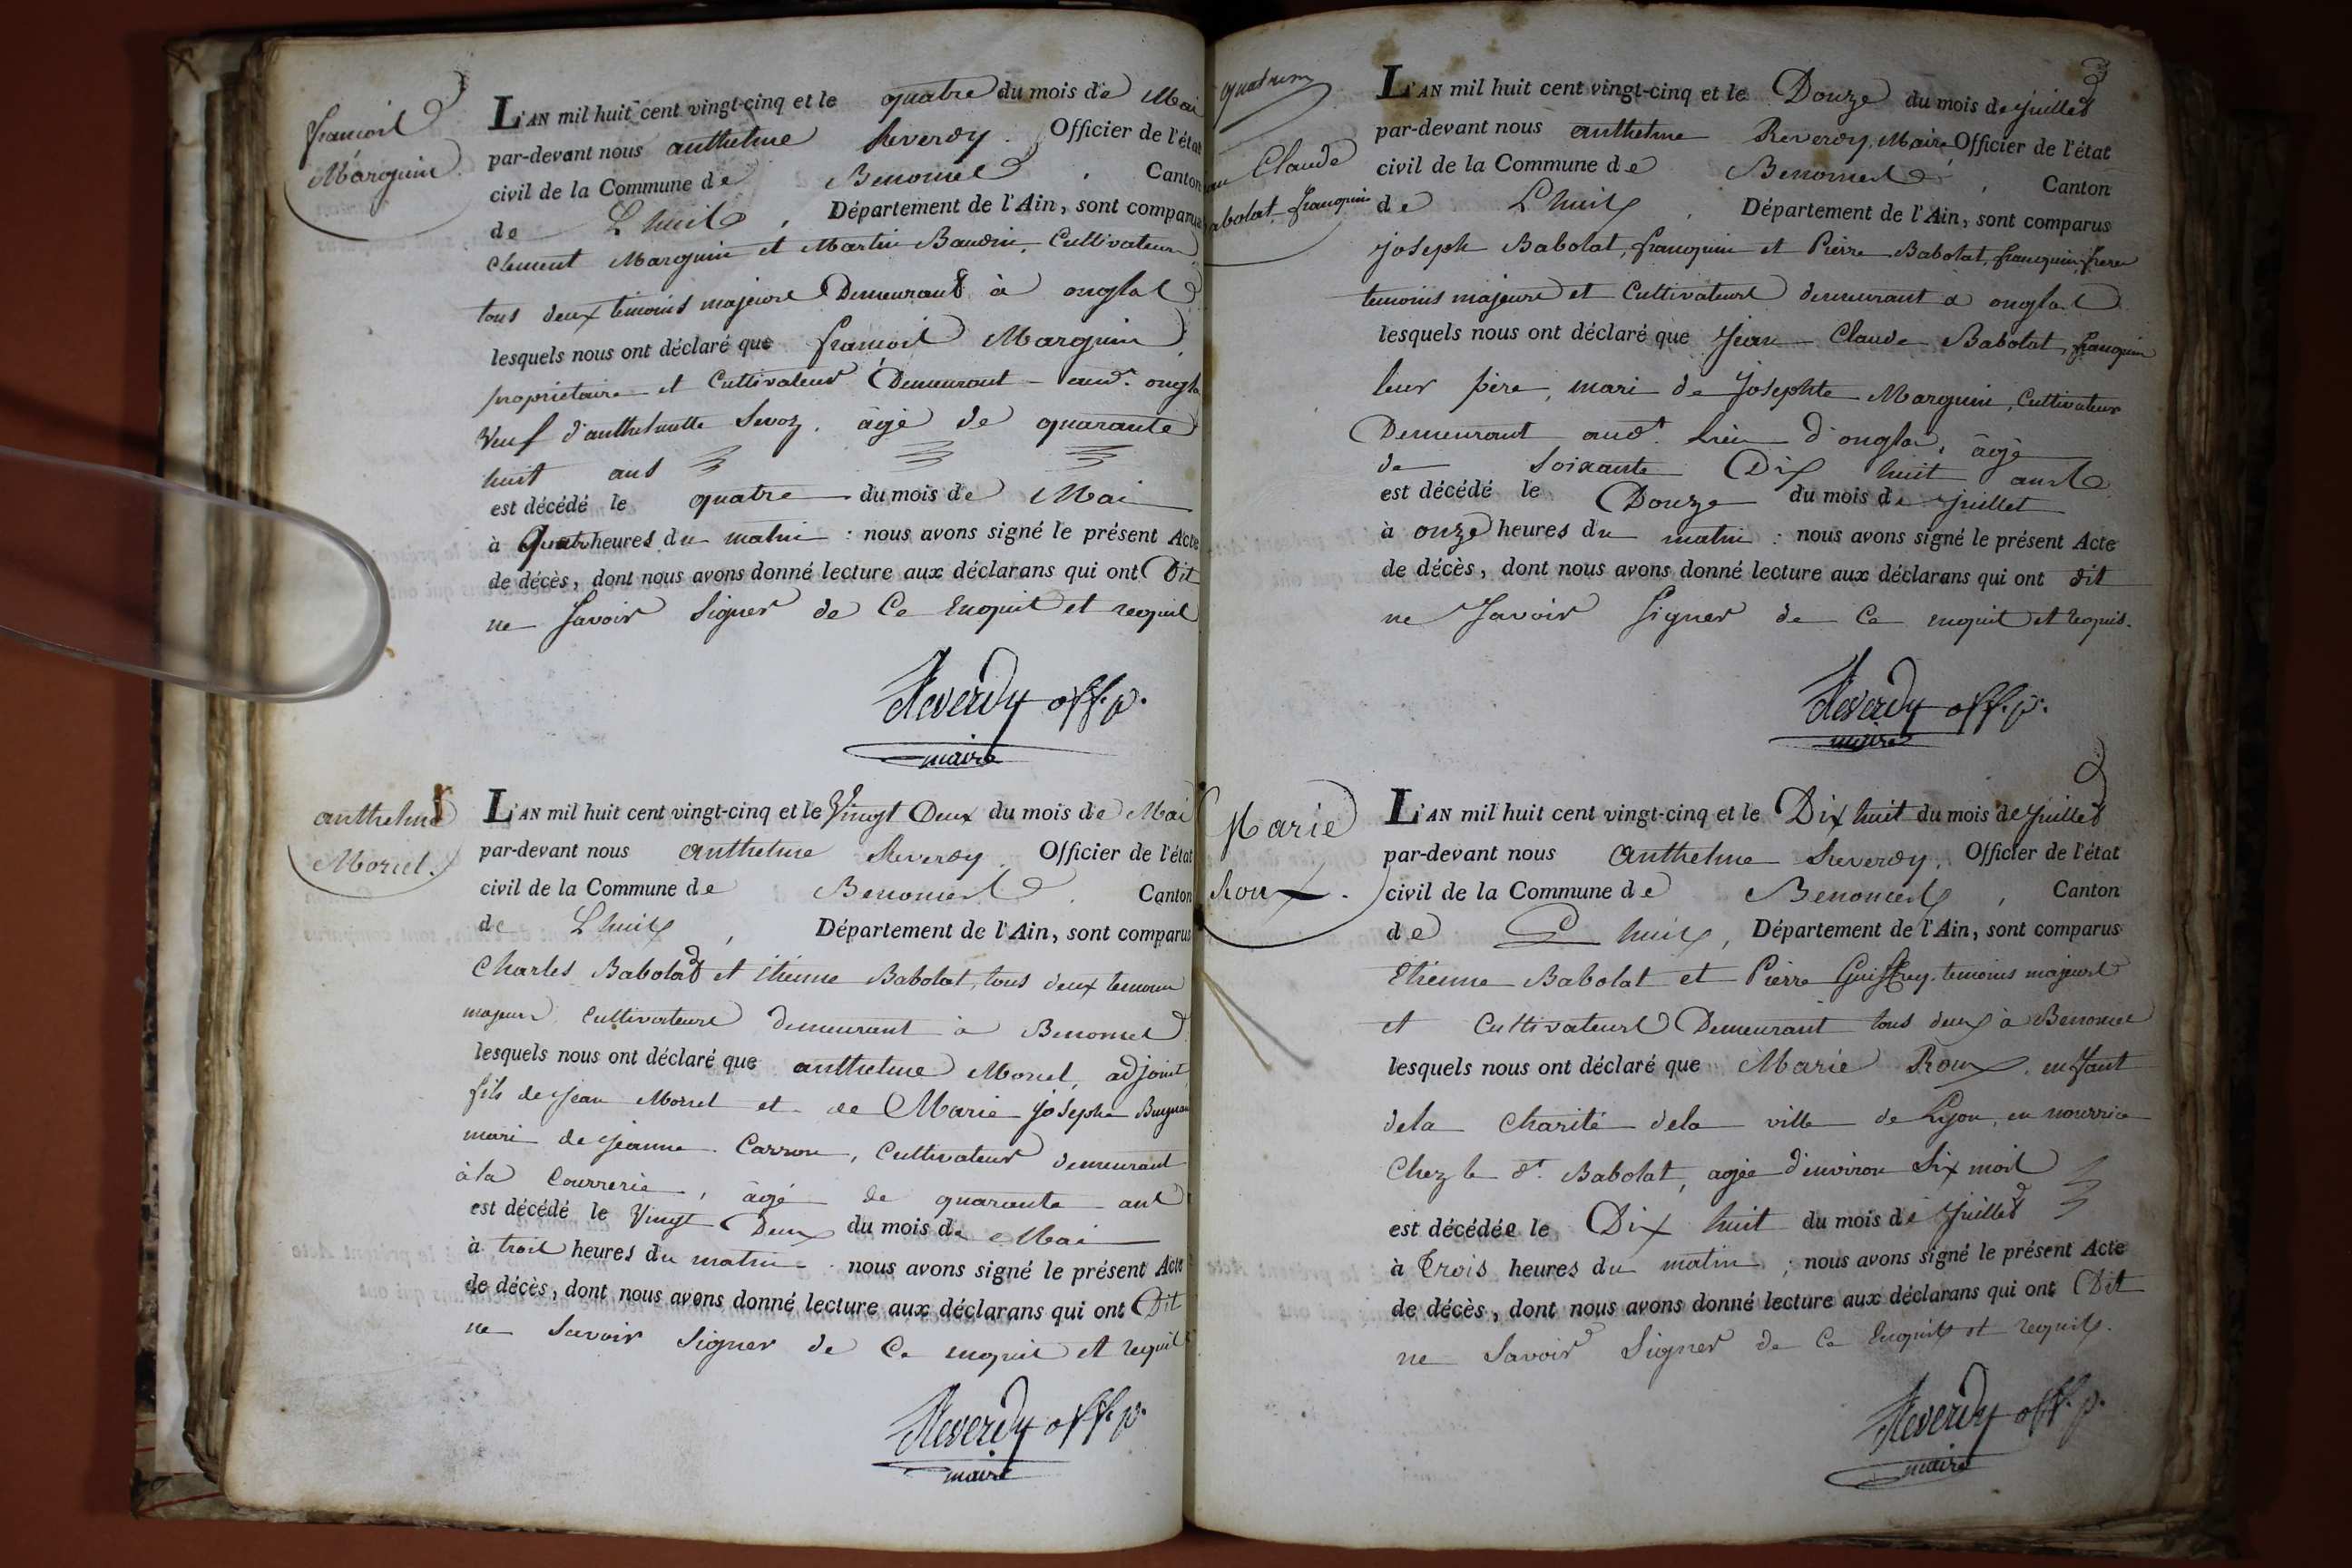 françois
Marquin
L'AN mil huit cent vingt-cinq et le quatre du mois de Mai
par-devant nous anthelme Reverdy. Officier de l'état
civil de la Commune de Benonces, Canton
de Lhuis, Département de l'Ain, sont comparus
Clement Marquin et Martin Baudin, Cultivateurs
tous deux temoins majeurs Demeurant à onglas
lesquels nous ont déclaré que françois Marquin
propriétaire et Cultivateur Demeurant aud.t ongla
Veuf d'anthelmette Sevoz. âgé de quarante
huit ans
est décédé le quatre du mois de Mai
à Quatre heures du matin : nous avons signé le présent Acte
de décès, dont nous avons donné lecture aux déclarans qui ont Dit
ne Savoir Signer de Ce Enquis et requis
Reverdy off. p.
maire
anthelme
Morriet.
L'AN mil huit cent vingt-cinq et le Vingt Deux du mois de Mai
par-devant nous anthelme Reverdy. Officier de l'état
civil de la Commune de Benonces. Canton
de Lhuis, Département de l'Ain, sont comparus
Charles Babolat et étienne Babolat, tous deux temoins
majeurs Cultivateurs demeurant à Benonces
lesquels nous ont déclaré que anthelme Morret, adjoint,
fils de Jean Morret et de Marie Josephe
mari de Jeanne Carron, Cultivateur demeurant
à la Courrerie, âgé de quarante ans
est décédé le Vingt Deux du mois de Mai
à trois heures du matin : nous avons signé le présent Acte
de décès, dont nous avons donné lecture aux déclarans qui ont Dit
ne Savoir Signer de Ce enquis et requis
Reverdy off. p.
maire
Claude
abolat franquin
L'AN mil huit cent vingt-cinq et le Douze du mois de Juillet
par-devant nous anthelme Reverdy, Maire Officier de l'état
civil de la Commune de Benonces, Canton
de Lhuis, Département de l'Ain, sont comparus
Joseph Babolat, franquin et Pierre Babolat, franquin, frere
temoins majeurs et Cultivateurs demeurant a onglas
lesquels nous ont déclaré que Jean Claude Babolat, franquin
leur père, mari de Josephte Marquin, Cultivateur
Demeurant aud.t Lieu d'ongla, âgé
de Soixante Dix huit ans
est décédé le Douze du mois de Juillet
à onze heures du matin : nous avons signé le présent Acte
de décès, dont nous avons donné lecture aux déclarans qui ont dit
ne Savoir Signer de Ce enquis et requis.
Reverdy off. p.
maire
Marie
Roux.
L'AN mil huit cent vingt-cinq et le Dix huit du mois de Juillet
par-devant nous Anthelme Reverdy, Officier de l'état
civil de la Commune de Benonces, Canton
de Lhuis, Département de l'Ain, sont comparus
Etienne Babolat et Pierre Guiffrey temoins majeurs
et Cultivateurs Demeurant tous deux à Benonces
lesquels nous ont déclaré que Marie Roux, enfant
dela Charité dela ville de Lyon, en nourrice
Chez le d.t Babolat, agée d'environ Six mois
est décédée le Dix huit du mois de Juillet
à Trois heures du matin ; nous avons signé le présent Acte
de décès, dont nous avons donné lecture aux déclarans qui ont Dit
ne Savoir Signer de Ce Enquis et requis.
Reverdy off. p.
maire